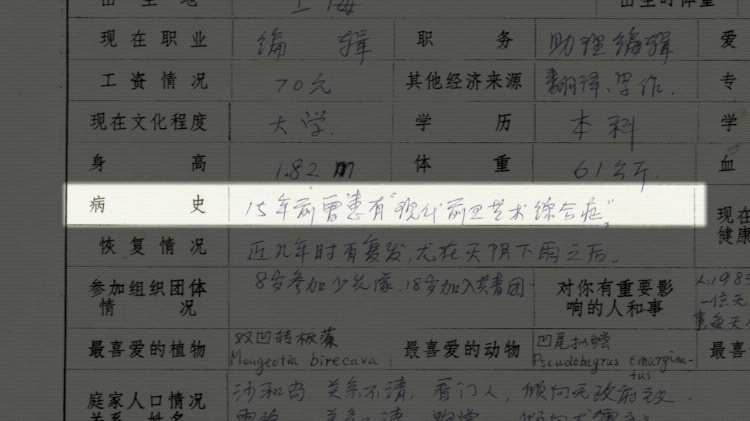 出生地 上海 出生时体重
现在职业 编辑 职务 助理编辑 爱
工资情况 70元 其他经济来源 翻译、写作. 专
现在文化程度 大学. 学历 本科 学
身高 1.82 m 体重 61公斤. 血
病史 15年前曾患有“现代前卫艺术综合症”. 现在
恢复情况 近几年时有复发,尤在天阴下雨之后. 健康
参加组织团体情况 8岁参加少先队,18岁加入共青团. 对你有重要影响的人和事 1983
一位天
最喜爱的植物 双凹转板藻 最喜爱的动物 凹尾拟鲿 最喜
Mougeotia birecava Pseudobagrus emarginatus
庭家人口情况 沙和尚 关系不清,看门人,倾向无政府主义
关系、姓名 关系不清